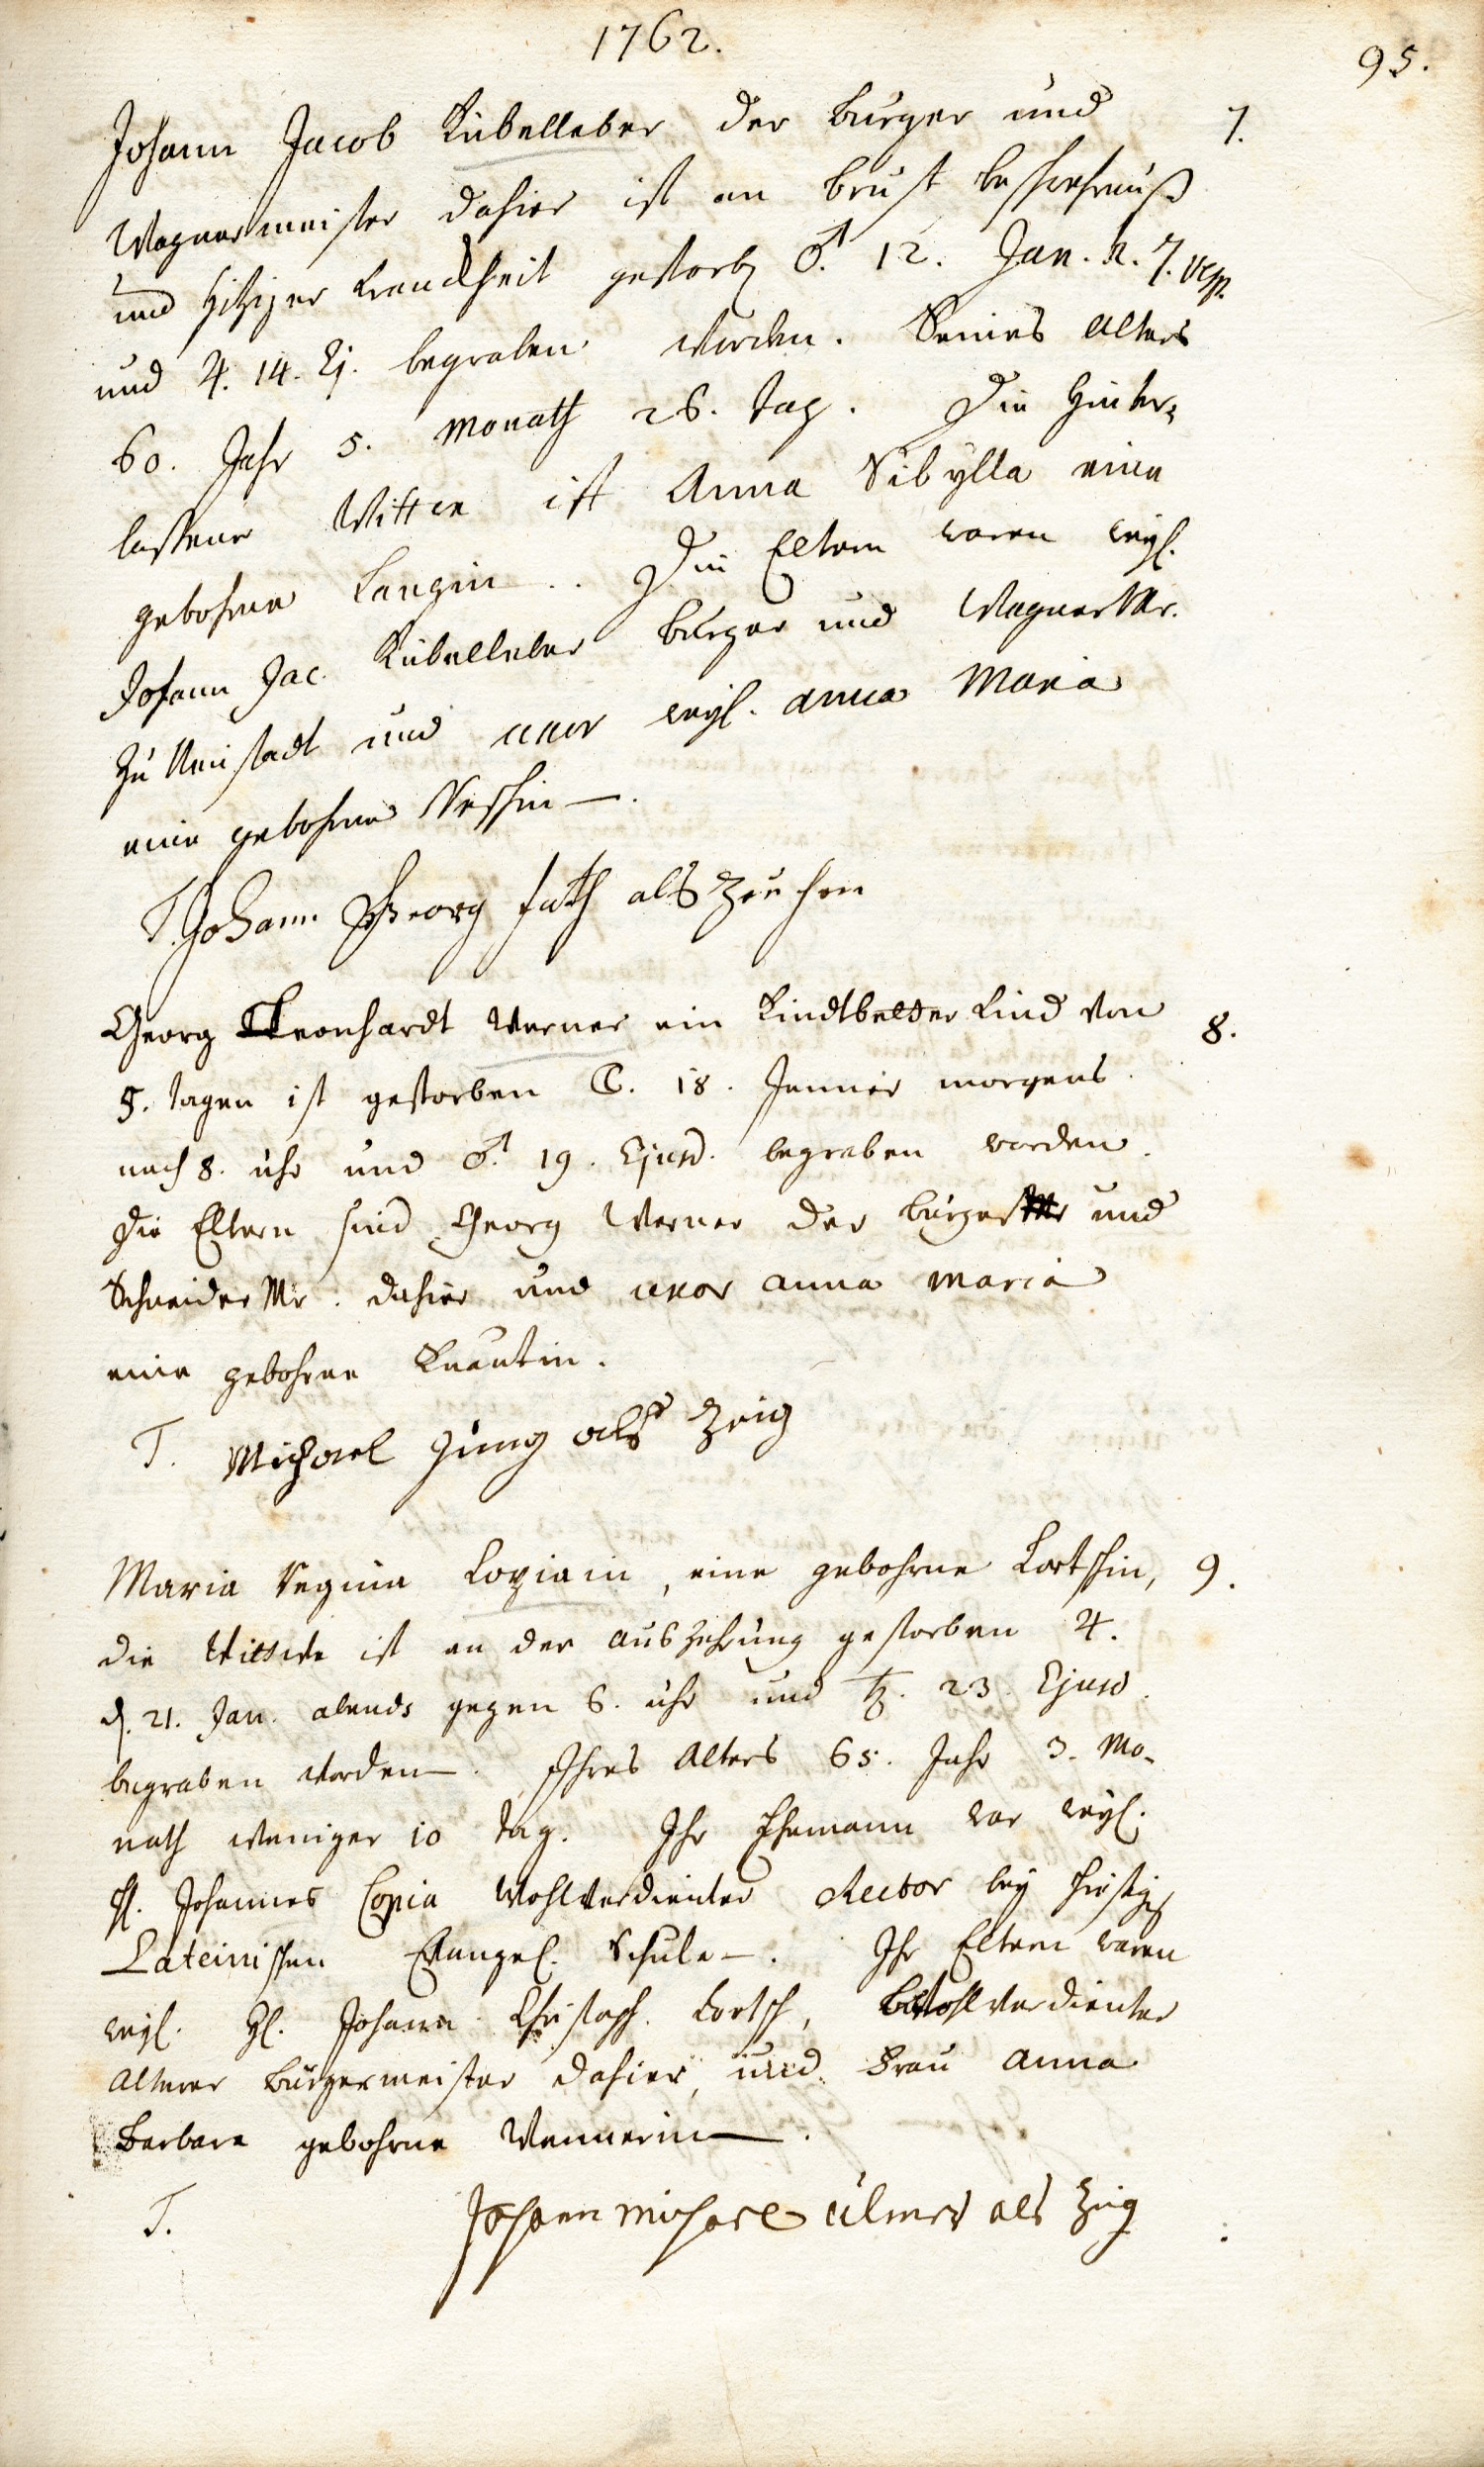 1762.
95.
Johann Jacob Kübelleber der burger und
7.
Wagnermeister dahier ist an brust beschwehrnuß
und hitziger kranckheit gestorb. ♂. 12. Jan. h. 7. vesp.
und ♃. 14. Ej. begraben worden. Seines alters
60. Jahr 5. Monath 26. tag. Die hinter=
lassene Wittwe ist Anna Sibylla eine
gebohrne Langin. Die Eltern waren weyl.
Johann Jac. Kübelleber burger und Wagner Mr.
zu Neustadt und uxor weyl. anna Maria
eine gebohrne
T. Johann Georg fath als Zeuchen
Georg Leonhardt Werner ein Kindtbetter Kind von
8.
5. tagen ist gestorben ☾. 18. Jenner morgens
nach 8. uhr und ♂. 19. Ejusd. begraben worden.
Die Eltern sind Georg Werner der burger und
Schneider Mr. dahier und uxor anna maria
eine gebohrne Knautin.
T. Michael Jung als Zeig
Maria Regina Copiain, eine gebohrne Lortschin,
9.
die Wittwe ist an der auszehrung gestorben ♃.
d. 21. Jan. abends gegen 6. uhr und ♄. 23. Ejusd.
begraben worden. Ihres Alters 65. Jahr 3. Mo-
nath weniger 10 tag. Ihr Ehemann war weyl.
H. Johannes Copia Wohlverdienter Rector bey hiesiger
Lateinischen Evangel. Schule. Ihr Eltern waren
weyl. H. Johann Christoph. Lortsch, Wohlverdienter
Alterer Bürgermeister dahier, und Frau Anna
Barbara gebohrne Wennerin.
T. Johann michael ulmer als Zeig